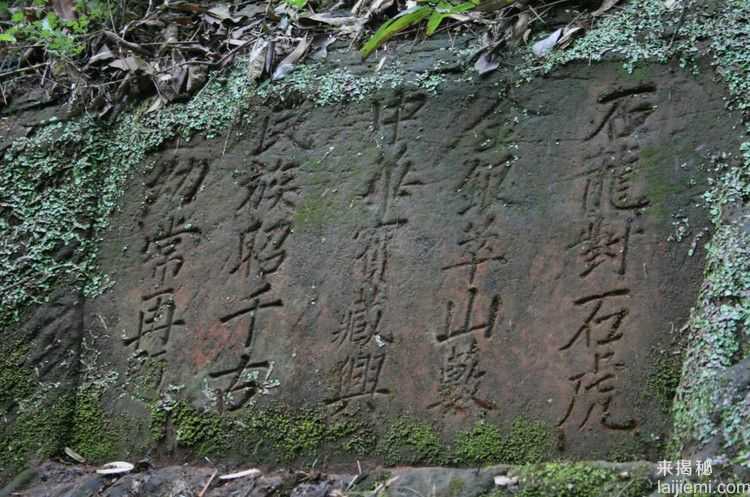 石龍对石虎
金銀萃山藪
中华寶藏興
民族昭千古
物常再
来揭秘
laijiemi.com